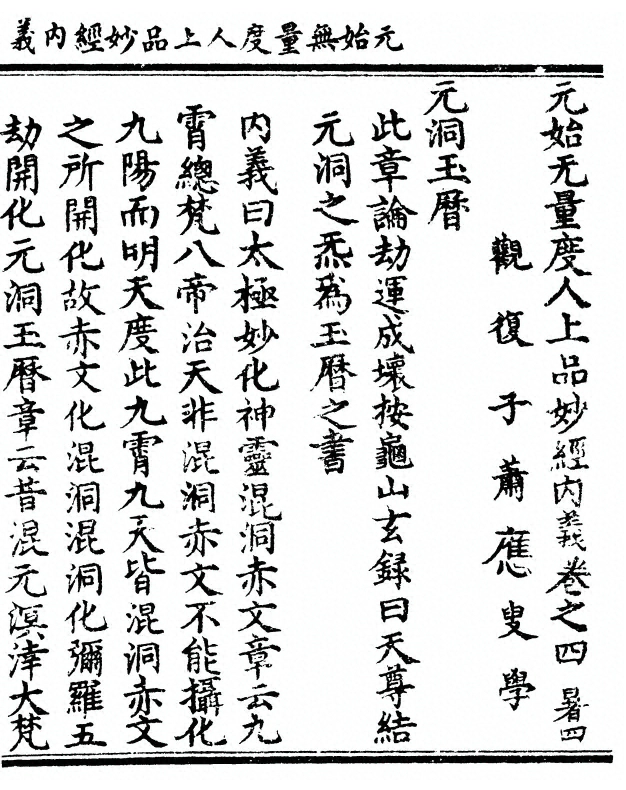 元始無量度人上品妙經內義
元始无量度人上品妙經内義卷之四 暑四
觀復子蕭應叟學
元洞玉曆
此章論劫運成壞按龜山玄録曰天尊結
元洞之炁為玉曆之書
内義曰太極妙化神靈混洞赤文章云九
霄總梵八帝治天非混洞赤文不能攝化
九陽而明天度此九霄九天皆混洞赤文
之所開化故赤文化混洞混洞化彌羅五
劫開化元洞玉曆章云昔混元溟涬大梵